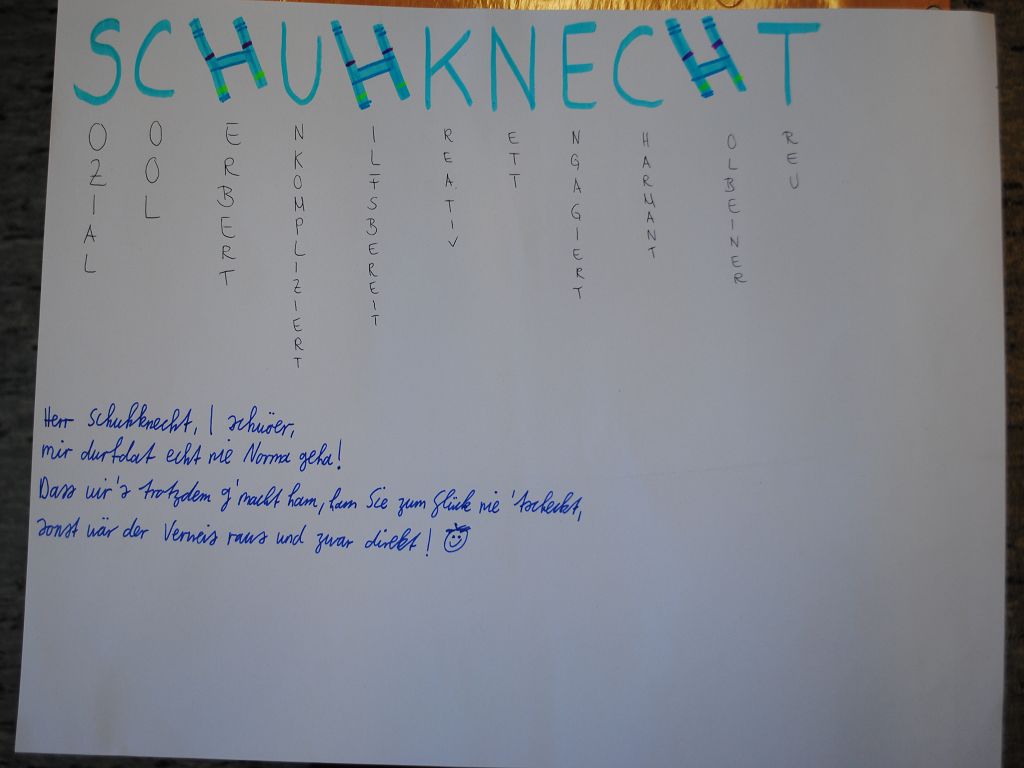 SCHUHKNECHT
OZIAL
OOL
ERBERT
NKOMPLIZIERT
ILFSBEREIT
REATIV
ETT
NGAGIERT
HARMANT
OLBEINER
REU
Herr Schuhknecht, I schwör,
mir durfdat echt nie Norma geha!
Dass wir's trotzdem g'macht ham, ham Sie zum Glück nie 'tscheckt,
sonst wär der Verweis raus und zwar direkt!